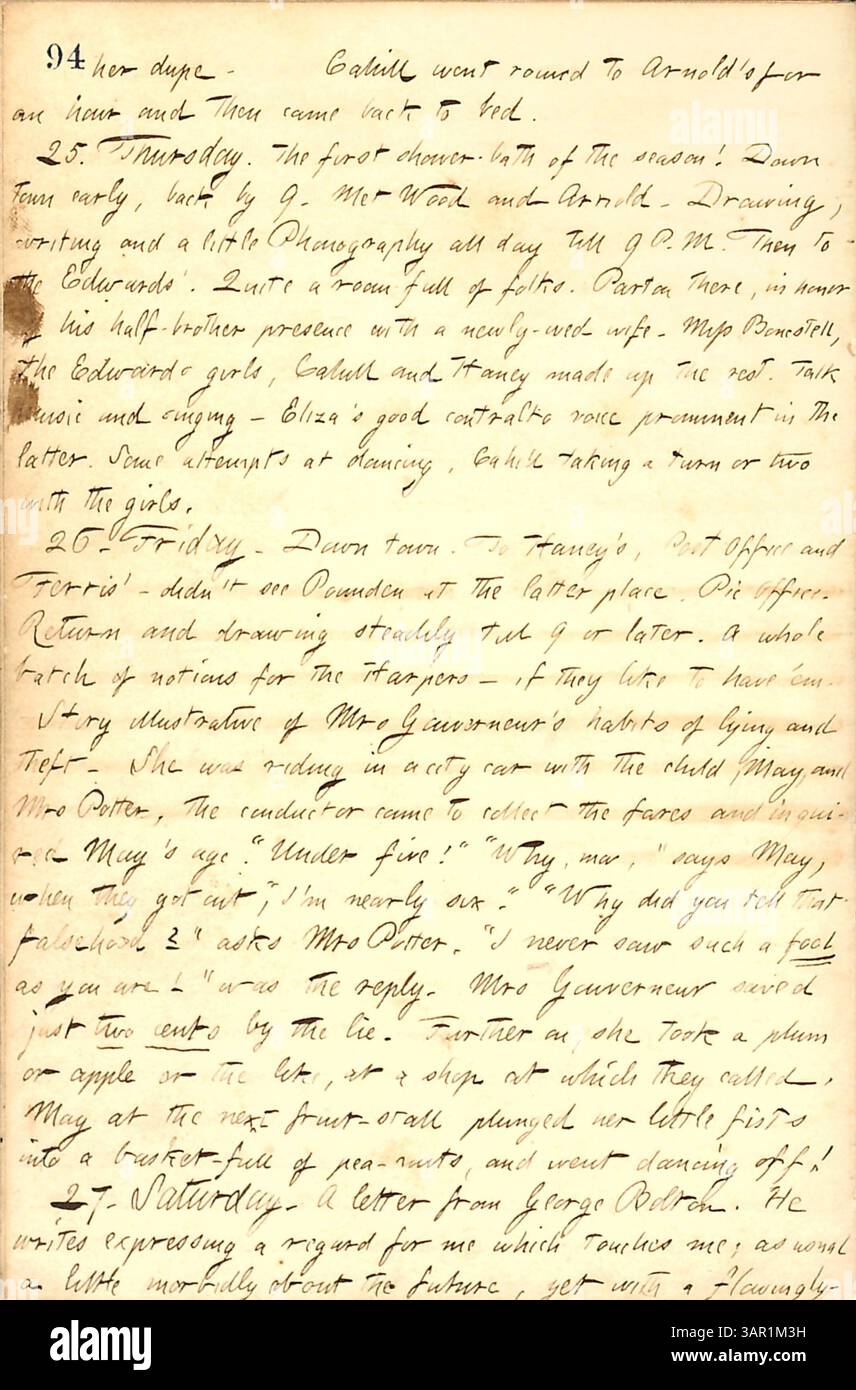 94 her dupe - Cahill went round to Arnold's for
an hour and then came back to bed.
25. Thursday. The first shower-bath of the season! Down
town early, back by 9. Met Wood and Arnold - Drawing,
writing and a little Phonography all day till 9 P.M. Then to
the Edwards'. Quite a room full of folks. Parton there, in honor
of his half-brother presence with a newly-wed wife - Miss Bonestell,
the Edwards girls, Cahill and Haney made up the rest. Talk
music and singing - Eliza's good contralto voice prominent in the
latter. Some attempts at dancing, Cahill taking a turn or two
with the girls.
26 - Friday - Down town. To Haney's, Post Office and
Ferris' - didn't see Pounden at the latter place. Pic Office.
Return and drawing steadily till 9 or later. A whole
batch of notions for the Harpers - if they like to have 'em -
Story illustrative of Mrs Gouverneur's habits of lying and
theft - She was riding in a city car with the child, May, and
Mrs Potter, the conductor came to collect the fares and inqui-
red May's age. "Under five!" "Why, ma," says May,
when they got out, "I'm nearly six." "Why did you tell that
falsehood?" asks Mrs Potter. "I never saw such a fool
as you are!" was the reply. Mrs Gouverneur saved
just two cents by the lie. Further on, she took a plum
or apple or the like, at a shop at which they called.
May at the next fruit-stall plunged her little fists
into a basket-full of pea-nuts, and went dancing off!
27 - Saturday - A letter from George Bolton. He
writes expressing a regard for me which touches me; as usual
a little morbidly about the future, yet with a flowingly-
alamy
Image ID: 3AR1M3H
www.alamy.com